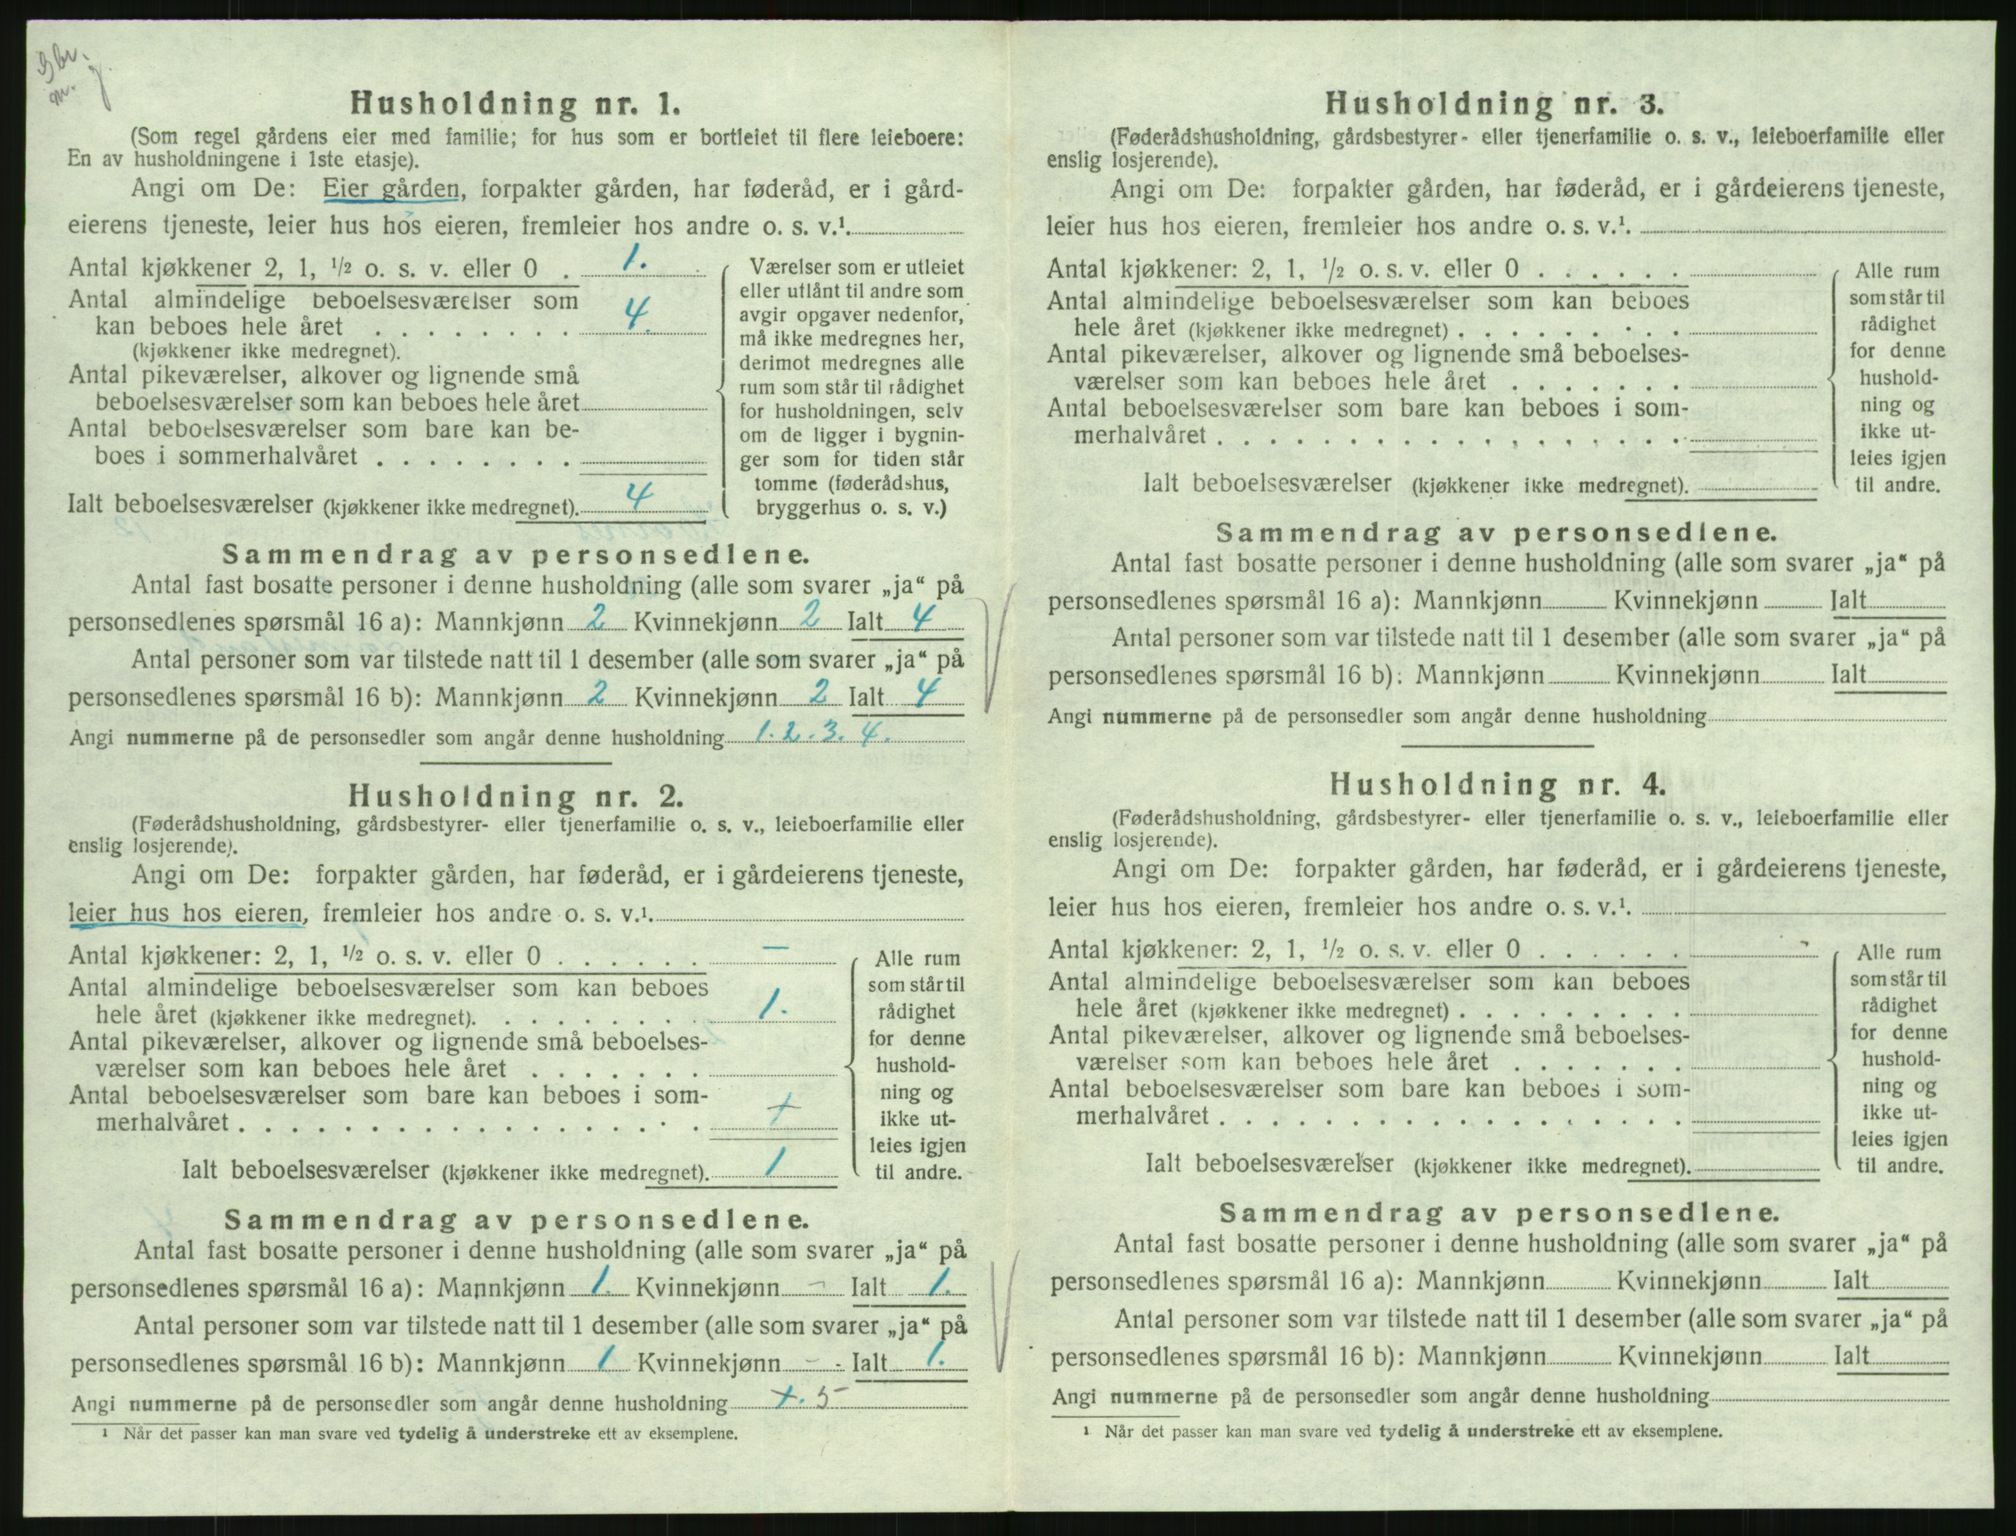 Husholdning nr. 1.
(Som regel gårdens eier med familie; for hus som er bortleiet til flere leieboere:
En av husholdningene i 1ste etasje).
Angi om De: Eier gården, forpakter gården, har føderåd, er i gård-
eierens tjeneste, leier hus hos eieren, fremleier hos andre o. s. v.¹.
Antal kjøkkener 2, 1, ½ o. s. v. eller 0 . 1.
Antal almindelige beboelsesværelser som
kan beboes hele året . . . . . . . . 4.
(kjøkkener ikke medregnet).
Antal pikeværelser, alkover og lignende små
beboelsesværelser som kan beboes hele året
Antal beboelsesværelser som bare kan be-
boes i sommerhalvåret . . . . . . . .
Ialt beboelsesværelser (kjøkkener ikke medregnet). 4
Værelser som er utleiet
eller utlånt til andre som
avgir opgaver nedenfor,
må ikke medregnes her,
derimot medregnes alle
rum som står til rådighet
for husholdningen, selv
om de ligger i bygnin-
ger som for tiden står
tomme (føderådshus,
bryggerhus o. s. v.)
Sammendrag av personsedlene.
Antal fast bosatte personer i denne husholdning (alle som svarer „ja“ på
personsedlenes spørsmål 16 a): Mannkjønn 2 Kvinnekjønn 2 Ialt 4
Antal personer som var tilstede natt til 1 desember (alle som svarer „ja“ på
personsedlenes spørsmål 16 b): Mannkjønn 2 Kvinnekjønn 2 Ialt 4
Angi nummerne på de personsedler som angår denne husholdning 1. 2. 3. 4.
Husholdning nr. 2.
(Føderådshusholdning, gårdsbestyrer- eller tjenerfamilie o. s. v., leieboerfamilie eller
enslig losjerende).
Angi om De: forpakter gården, har føderåd, er i gårdeierens tjeneste,
leier hus hos eieren, fremleier hos andre o. s. v.¹.
Antal kjøkkener: 2, 1, ½ o. s. v. eller 0 . . . . . . —
Antal almindelige beboelsesværelser som kan beboes
hele året (kjøkkener ikke medregnet). . . . . . . . . 1.
Antal pikeværelser, alkover og lignende små beboelses-
værelser som kan beboes hele året . . . . . . .
Antal beboelsesværelser som bare kan beboes i som-
merhalvåret . . . . . . . . . . . . . . . . . . +
Ialt beboelsesværelser (kjøkkener ikke medregnet). 1
Alle rum
som står til
rådighet
for denne
hushold-
ning og
ikke ut-
leies igjen
til andre.
Sammendrag av personsedlene.
Antal fast bosatte personer i denne husholdning (alle som svarer „ja“ på
personsedlenes spørsmål 16 a): Mannkjønn 1. Kvinnekjønn - Ialt 1.
Antal personer som var tilstede natt til 1 desember (alle som svarer „ja“ på
personsedlenes spørsmål 16 b): Mannkjønn 1 Kvinnekjønn - - Ialt 1.
Angi nummerne på de personsedler som angår denne husholdning +. 5
¹ Når det passer kan man svare ved tydelig å understreke ett av eksemplene.
Husholdning nr. 3.
(Føderådshusholdning, gårdsbestyrer- eller tjenerfamilie o. s. v., leieboerfamilie eller
enslig losjerende).
Angi om De: forpakter gården, har føderåd, er i gårdeierens tjeneste,
leier hus hos eieren, fremleier hos andre o. s. v.¹.
Antal kjøkkener: 2, 1, ½ o. s. v. eller 0 . . . . . .
Antal almindelige beboelsesværelser som kan beboes
hele året (kjøkkener ikke medregnet) . . . . . . . . .
Antal pikeværelser, alkover og lignende små beboelses-
værelser som kan beboes hele året . . . . . . .
Antal beboelsesværelser som bare kan beboes i som-
merhalvåret . . . . . . . . . . . . . . . . . .
Ialt beboelsesværelser (kjøkkener ikke medregnet).
Alle rum
som står til
rådighet
for denne
hushold-
ning og
ikke ut-
leies igjen
til andre.
Sammendrag av personsedlene.
Antal fast bosatte personer i denne husholdning (alle som svarer „ja“ på
personsedlenes spørsmål 16 a): Mannkjønn Kvinnekjønn Ialt
Antal personer som var tilstede natt til 1 desember (alle som svarer „ja“ på
personsedlenes spørsmål 16 b): Mannkjønn Kvinnekjønn Ialt
Angi nummerne på de personsedler som angår denne husholdning
Husholdning nr. 4.
(Føderådshusholdning, gårdsbestyrer- eller tjenerfamilie o. s. v., leieboerfamilie eller
enslig losjerende).
Angi om De: forpakter gården, har føderåd, er i gårdeierens tjeneste,
leier hus hos eieren, fremleier hos andre o. s. v.¹.
Antal kjøkkener: 2, 1, ½ o. s. v. eller 0 . . . . . .
Antal almindelige beboelsesværelser som kan beboes
hele året (kjøkkener ikke medregnet) . . . . . . . . .
Antal pikeværelser, alkover og lignende små beboelses-
værelser som kan beboes hele året . . . . . . .
Antal beboelsesværelser som bare kan beboes i som-
merhalvåret . . . . . . . . . . . . . . . . . .
Ialt beboelsesværelser (kjøkkener ikke medregnet).
Alle rum
som står til
rådighet
for denne
hushold-
ning og
ikke ut-
leies igjen
til andre.
Sammendrag av personsedlene.
Antal fast bosatte personer i denne husholdning (alle som svarer „ja“ på
personsedlenes spørsmål 16 a): Mannkjønn Kvinnekjønn Ialt
Antal personer som var tilstede natt til 1 desember (alle som svarer „ja“ på
personsedlenes spørsmål 16 b): Mannkjønn Kvinnekjønn Ialt
Angi nummerne på de personsedler som angår denne husholdning
¹ Når det passer kan man svare ved tydelig å understreke ett av eksemplene.